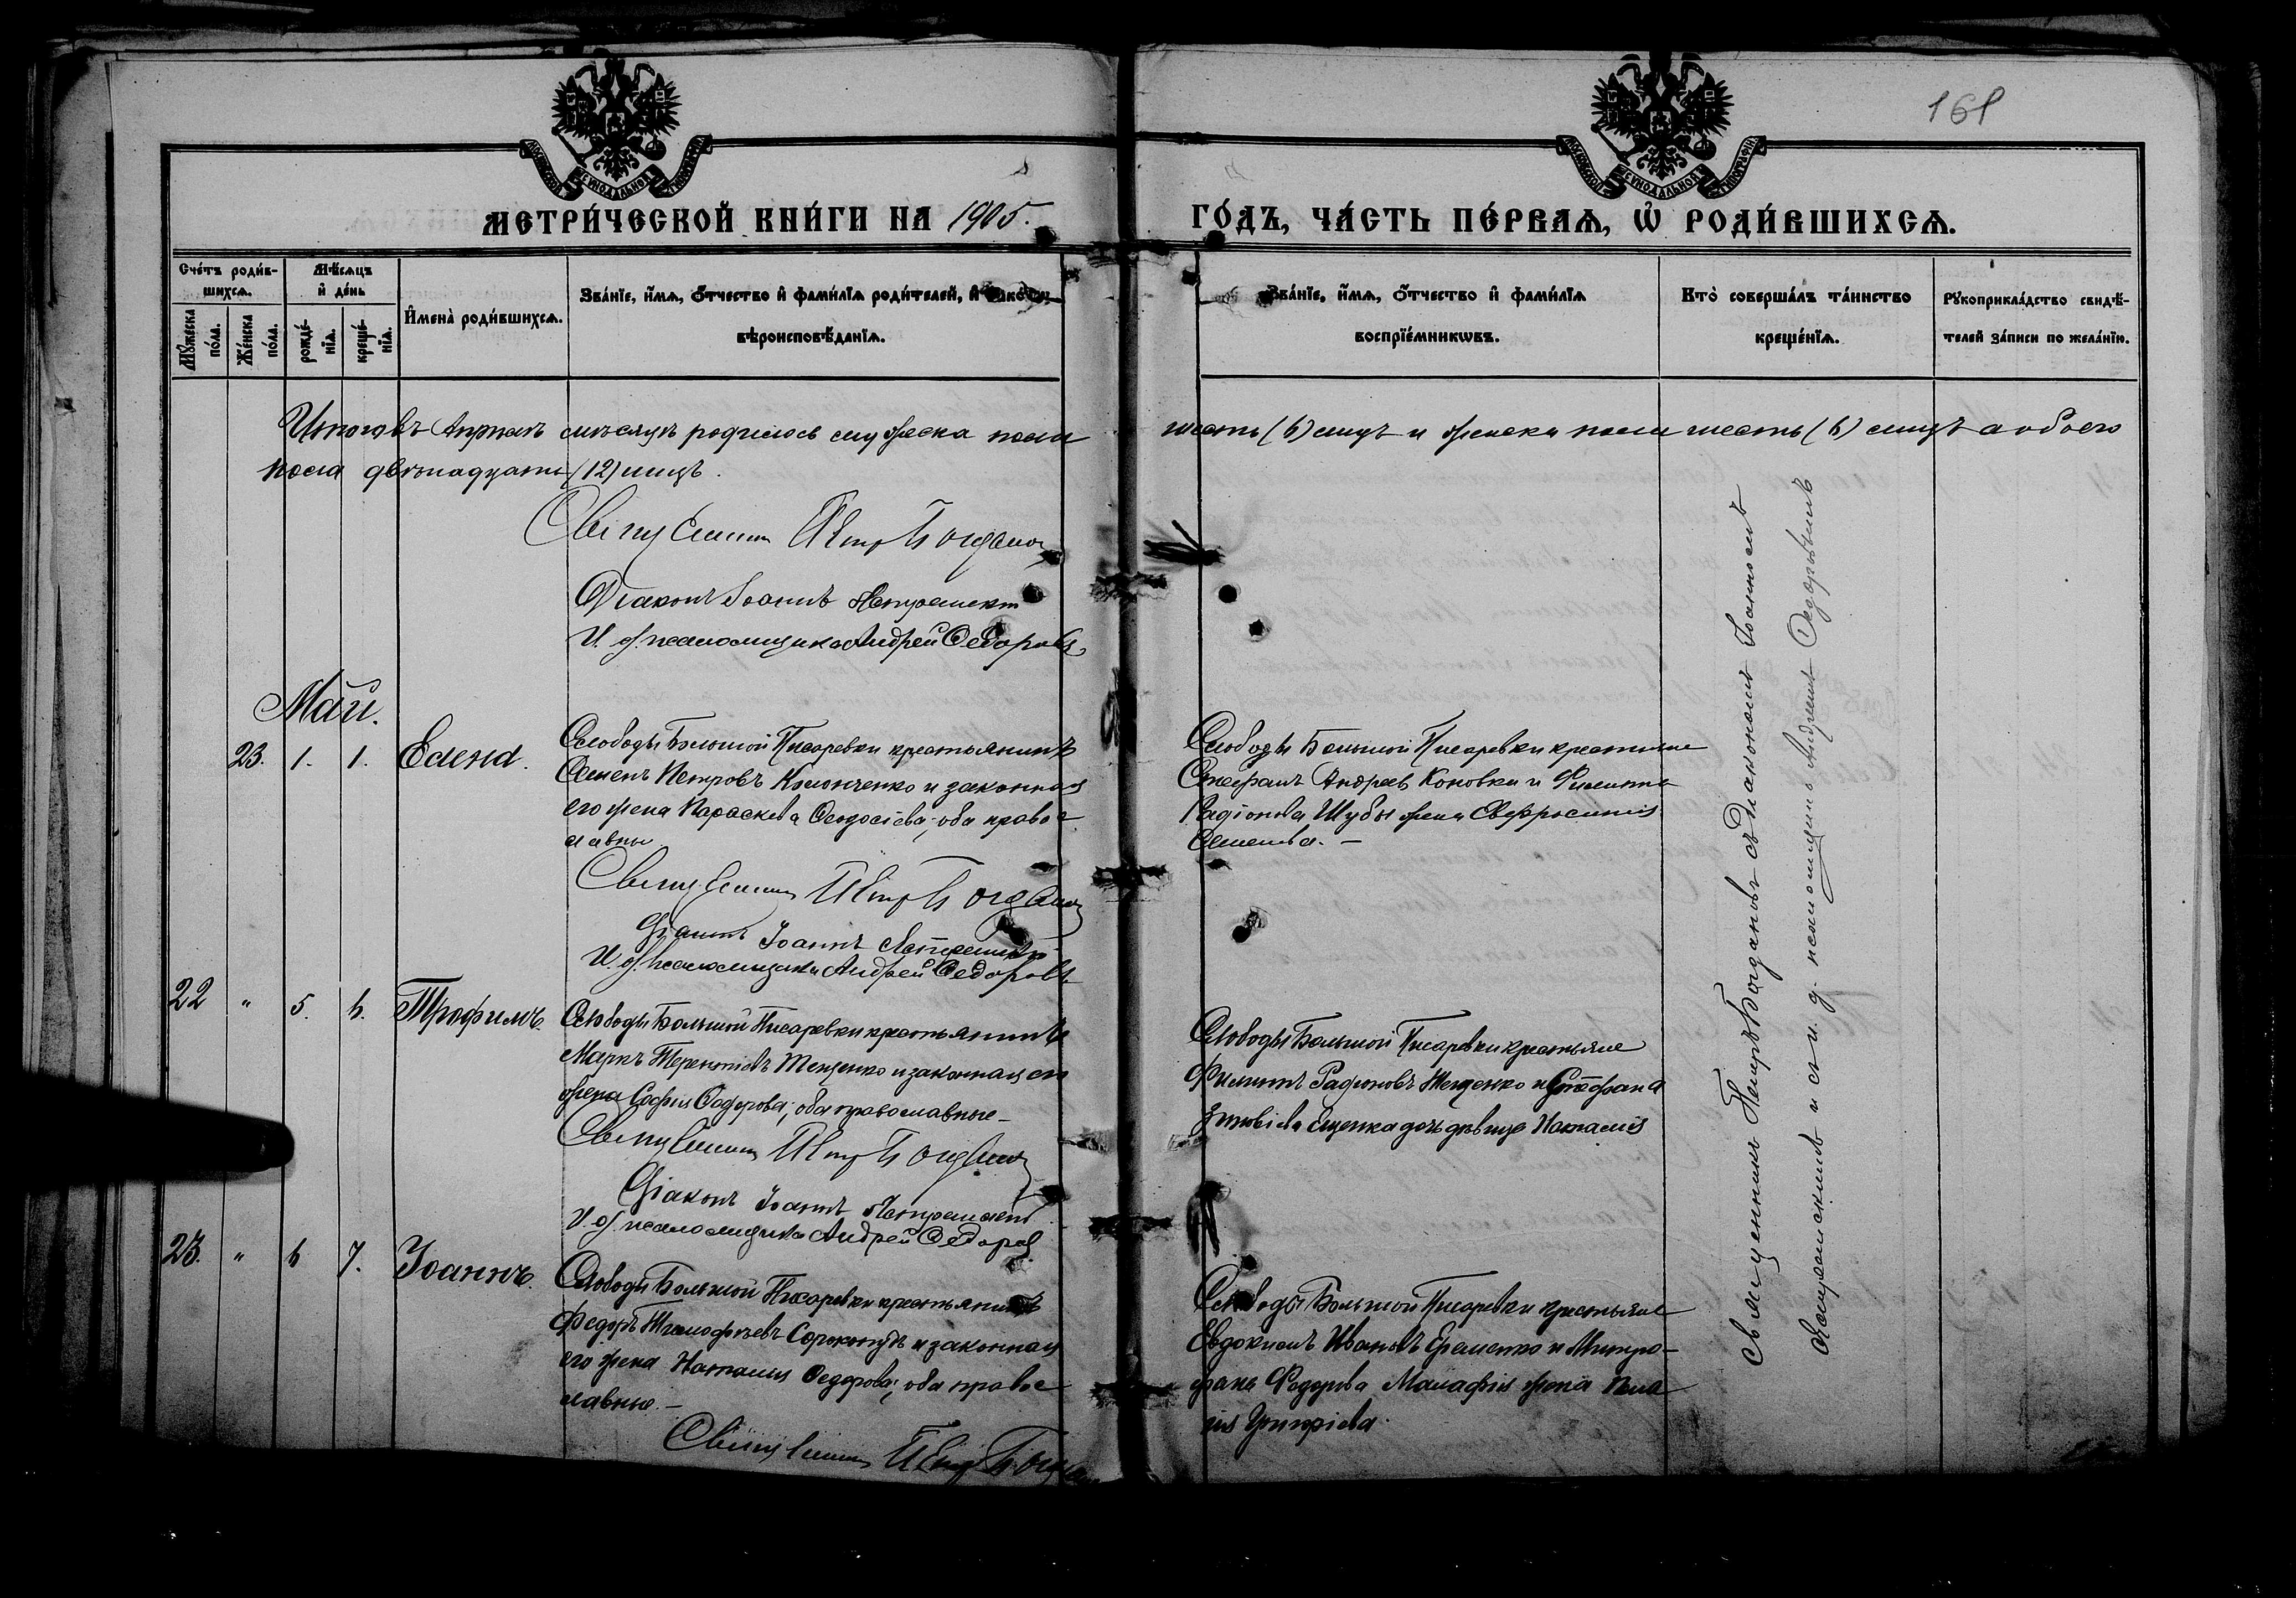 161
МЕТРИЧЕСКОЙ КНИГИ НА 1905.
ГОДЪ, ЧАСТЬ ПЕРВАЯ, Ѡ РОДИВШИХСЯ.
Счетъ родившихся.
Мужеска пола.
Женска пола.
Мѣсяцъ и день
рожденія.
крещенія.
Имена родившихся.
Званіе, имя, отчество и фамилія родителей, и
вѣроисповѣданія.
Званіе, имя, отчество и фамилія
воспріемниковъ.
Кто совершалъ таинство
крещенія.
Рукоприкладство свидѣ-
телей записи по желанію.
Итого въ Апрѣлѣ мѣсяцѣ родилось мужеска пола шесть (6) лицъ и женска пола шесть (6) лицъ а обоего
пола двѣнадцать (12) лицъ.
Священникъ Петръ Богданов
Діаконъ Іоаннъ
И. д. псаломщика Андрей Федоровъ
Май.
23. 1. 1. Елена.
Слободы Большой Писаревки крестьянинъ
Семенъ Петровъ Коломченко и законная
его жена Параскева Ѳеодосіева; оба право-
славны
Священникъ Петръ Богданов
Діаконъ Іоаннъ
И. д. псаломщика Андрей Федоровъ
Слободы Большой Писаревки крестьяне
Стефанъ Андреев Коновка и Филиппа
Радіонова Шубы жена Евфросинія
Семенова. —
22 " 5. 6. Трофимъ.
Слободы Большой Писаревки крестьянинъ
Маркъ Терентіевъ Тещенко и законная его
жена Софія Ѳедорова; оба православные —
Священникъ Петръ Богданов
Діаконъ Іоаннъ
И. д. псаломщика Андрей Федоров
Слободы Большой Писаревки крестьяне
Филиппъ Радіоновъ Тещенко и Стефана
Зиновіева Ещенка дочь дѣвица Наталія
23. " 6 7. Іоаннъ.
Слободы Большой Писаревки крестьянинъ
Федоръ Тимофѣевъ Сорокопудъ и законная
его жена Наталія Ѳедорова; оба право-
славные. —
Священникъ Петръ Богда
Слободы Большой Писаревки крестьяне
Евдокимъ Ивановъ Еременко и Митро-
фана Федорова Малафія жена Пела
гія Григоріева.
Священникъ Петръ Богдановъ съ Діакономъ Іоанномъ
и и. д. псаломщика Андреемъ Федоровымъ